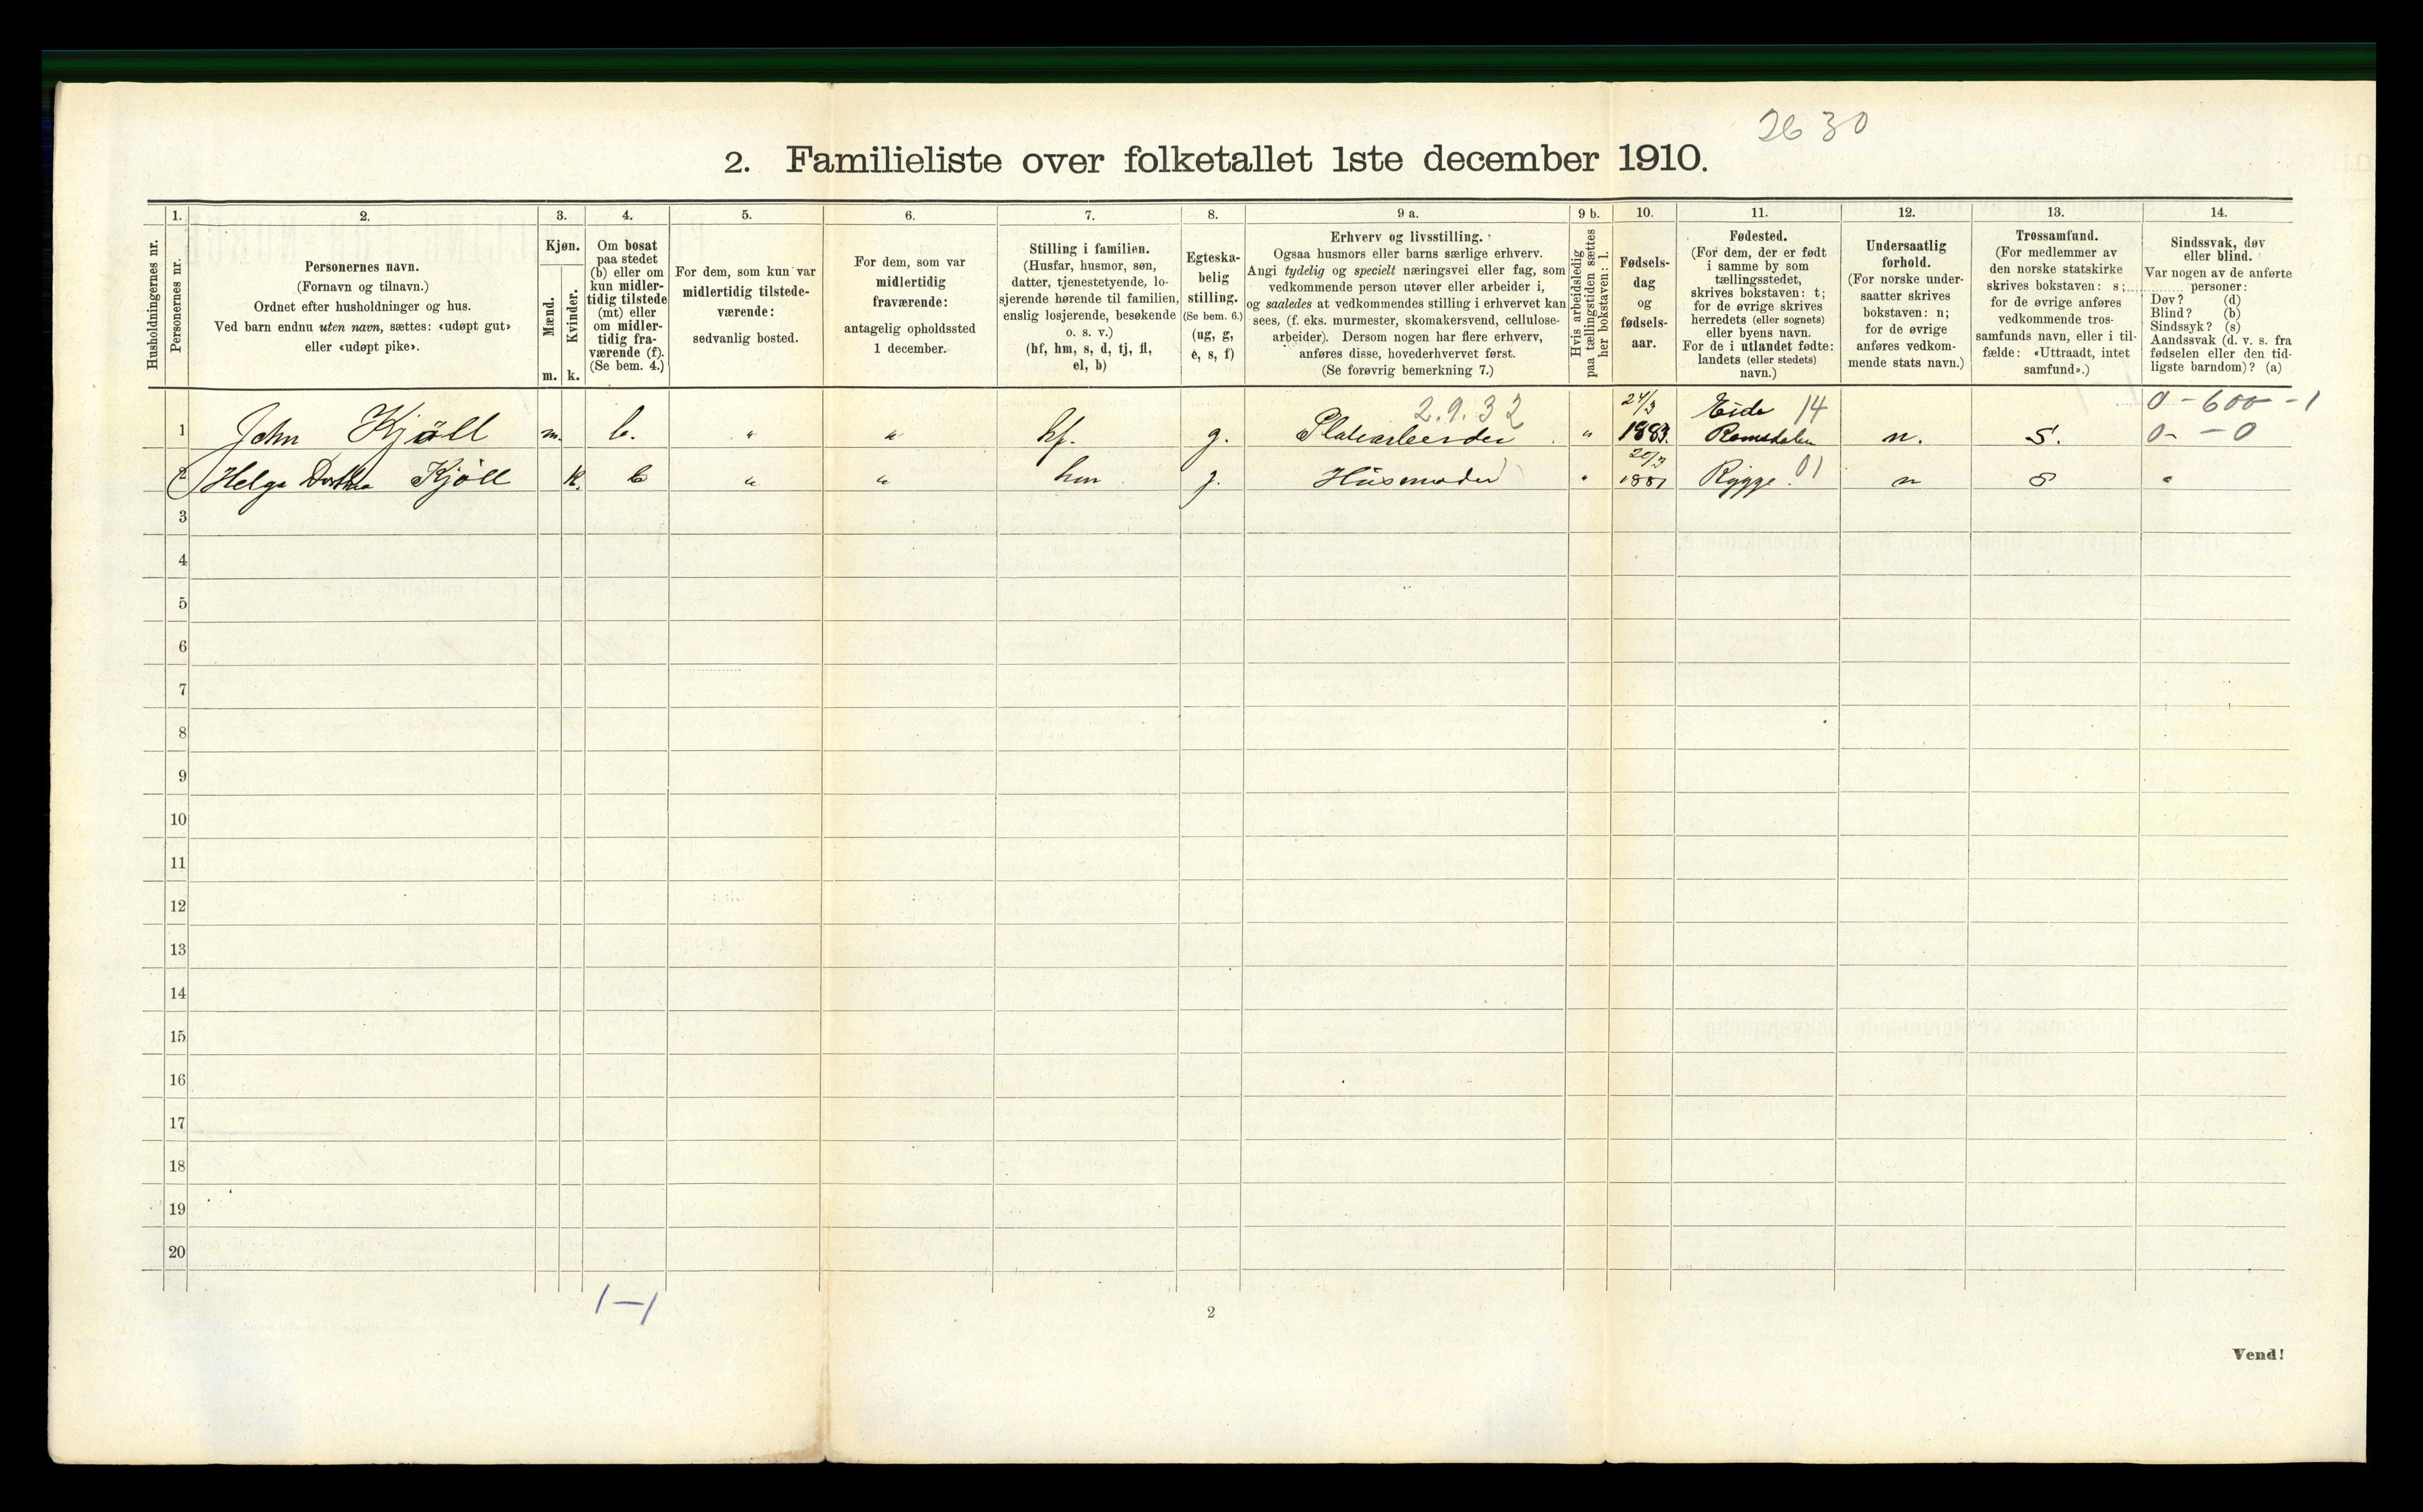 2630
2. Familieliste over folketallet 1ste december 1910.
1. 2. 3. 4. 5. 6. 7. 8. 9 a. 9 b. 10. 11. 12. 13. 14.
Husholdningernes nr.
Personernes nr.
Personernes navn.
(Fornavn og tilnavn.)
Ordnet efter husholdninger og hus.
Ved barn endnu uten navn, sættes: «udøpt gut»
eller «udøpt pike».
Kjøn.
Mænd.
Kvinder.
m. k.
Om bosat
paa stedet
(b) eller om
kun midler-
tidig tilstede
(mt) eller
om midler-
tidig fra-
værende (f).
(Se bem. 4.)
For dem, som kun var
midlertidig tilstede-
værende:
sedvanlig bosted.
For dem, som var
midlertidig
fraværende:
antagelig opholdssted
1 december.
Stilling i familien.
(Husfar, husmor, søn,
datter, tjenestetyende, lo-
sjerende hørende til familien,
enslig losjerende, besøkende
o. s. v.)
(hf, hm, s, d, tj, fl,
el, b)
Egteska-
belig
stilling.
(Se bem. 6.)
(ug, g,
e, s, f)
Erhverv og livsstilling.
Ogsaa husmors eller barns særlige erhverv.
Angi tydelig og specielt næringsvei eller fag, som
vedkommende person utøver eller arbeider i,
og saaledes at vedkommendes stilling i erhvervet kan
sees, (f. eks. murmester, skomakersvend, cellulose-
arbeider). Dersom nogen har flere erhverv,
anføres disse, hovederhvervet først.
(Se forøvrig bemerkning 7.)
Hvis arbeidsledig
paa tællingstiden sættes
her bokstaven: l.
Fødsels-
dag
og
fødsels-
aar.
Fødested.
(For dem, der er født
i samme by som
tællingsstedet,
skrives bokstaven: t;
for de øvrige skrives
herredets (eller sognets)
eller byens navn.
For de i utlandet fødte:
landets (eller stedets)
navn.)
Undersaatlig
forhold.
(For norske under-
saatter skrives
bokstaven: n;
for de øvrige
anføres vedkom-
mende stats navn.)
Trossamfund.
(For medlemmer av
den norske statskirke
skrives bokstaven: s;
for de øvrige anføres
vedkommende tros-
samfunds navn, eller i til-
fælde: «Uttraadt, intet
samfund».)
Sindssvak, døv
eller blind.
Var nogen av de anførte
personer:
Døv? (d)
Blind? (b)
Sindssyk? (s)
Aandssvak (d. v. s. fra
fødselen eller den tid-
ligste barndom)? (a)
2.9.32 24/3 Eide 14 0-600-1
1 John Kjøll m. b. " " hf. g. " 1883. Romsdalen n. S. 0- -0
2 Helga Dorthea Kjöll k. b " " hm g. Hüsmoder " 1881 Rygge 01 n S "
3
4
5
6
7
8
9
10
11
12
13
14
15
16
17
18
19
20
1-1
2
Vend!